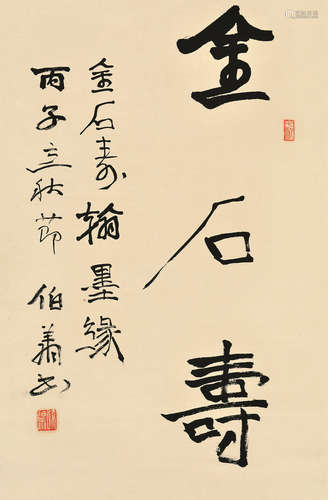 金石壽
金石寿翰墨緣
丙子立秋節 伯蕭书